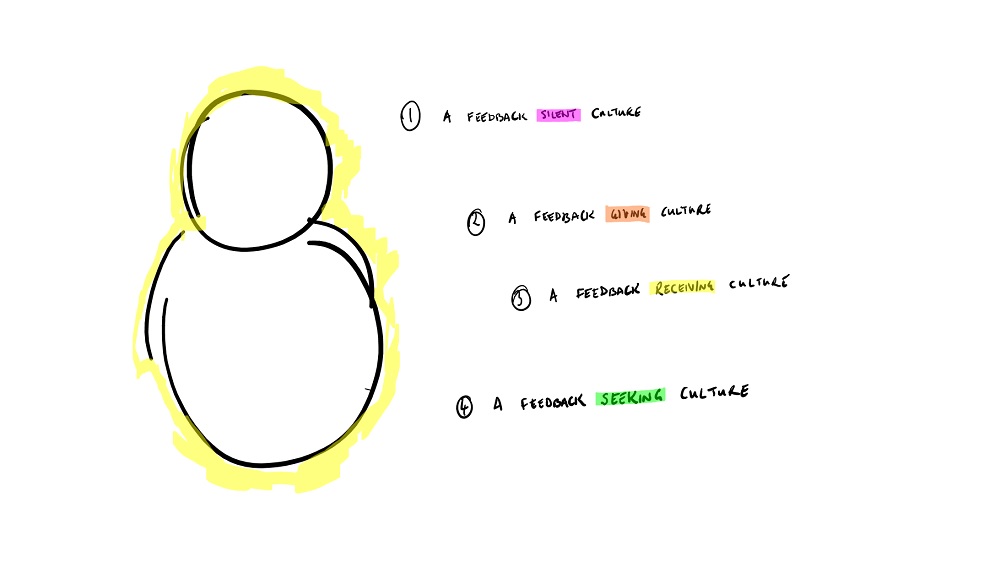 1 A FEEDBACK SILENT CULTURE
2 A FEEDBACK GIVING CULTURE
3 A FEEDBACK RECEIVING CULTURE
4 A FEEDBACK SEEKING CULTURE